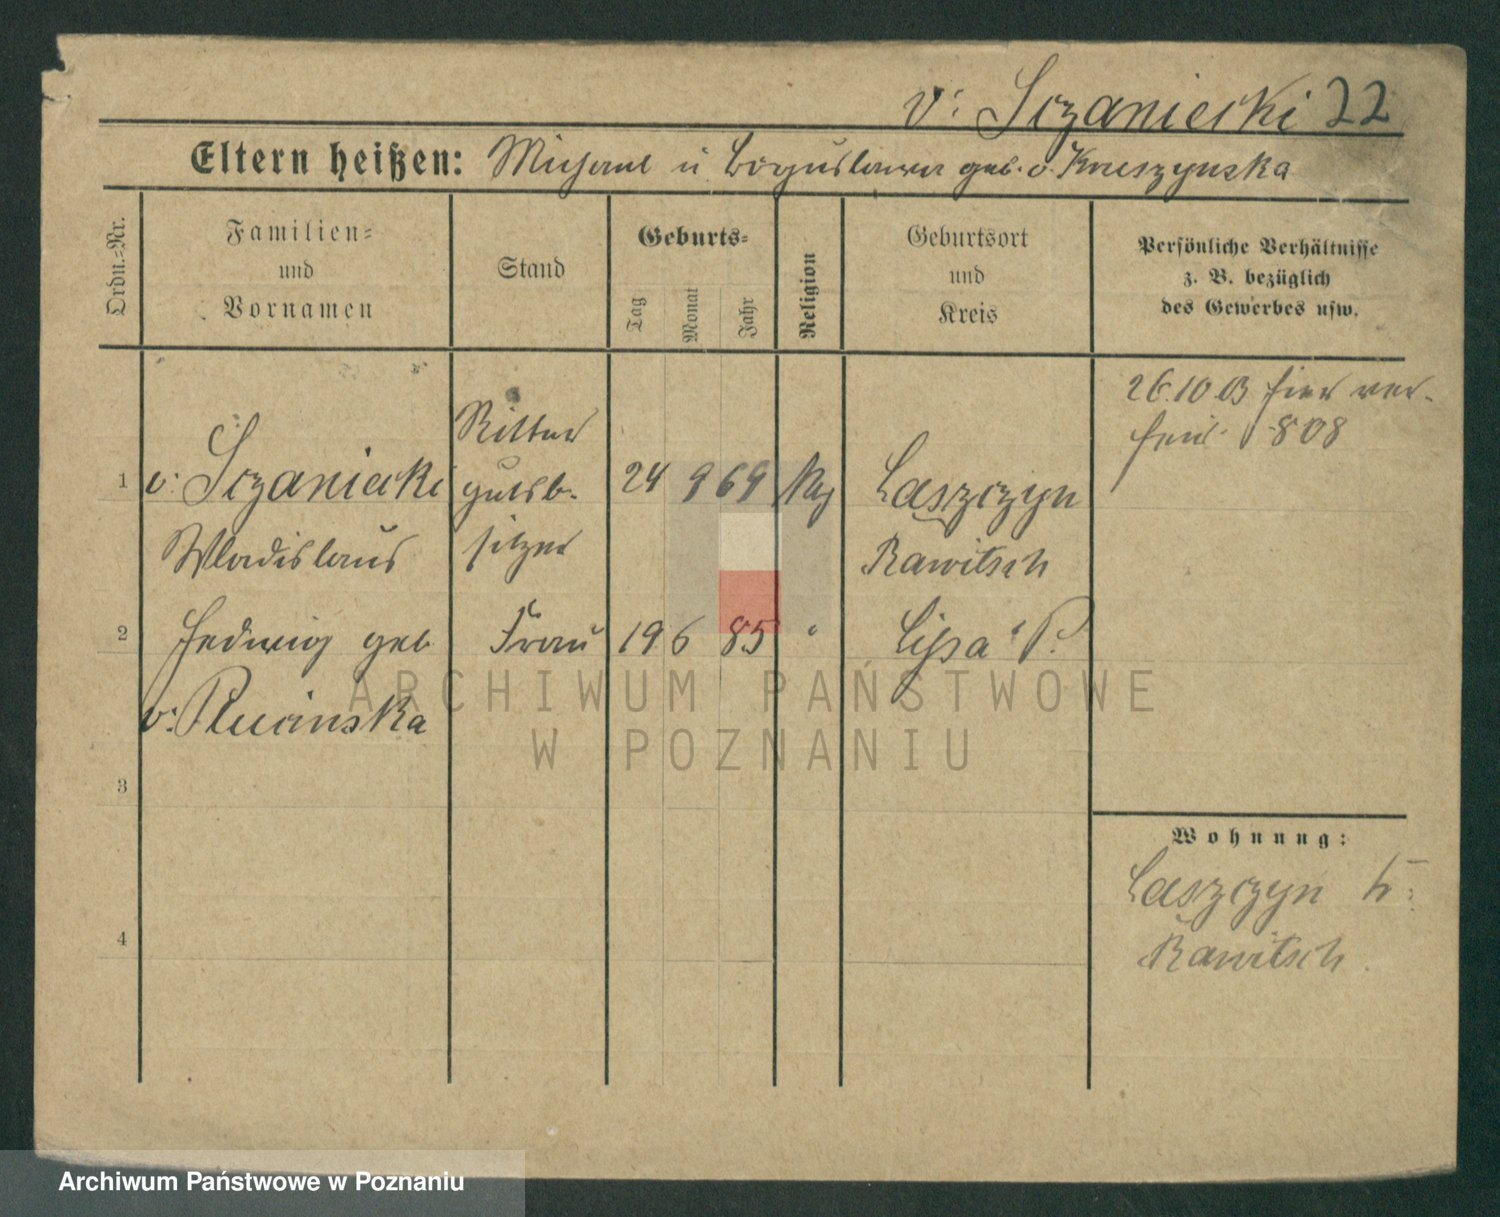 v. Sczaniecki 22
Eltern heißen: Michael u Boguslawa geb. v. Kraszynska
Ordn.-Nr.
Familien-
und
Vornamen
Stand
Geburts-
Tag
Monat
Jahr
Religion
Geburtsort
und
Kreis
Persönliche Verhältnisse
z. B. bezüglich
des Gewerbes usw.
26.10.03 hier
808
1 v. Sczaniecki Ritter
gutsb. 24 9 69 Laszczyn
Wladislaus sitzer Rawitsch
2 Hedwig geb Frau 19 6 85 " Lissa i/P.
v. Plucinska
3
4
Wohnung:
Laszczyn K.
Rawitsch.
ARCHIWUM PAŃSTWOWE
W POZNANIU
Archiwum Państwowe w Poznaniu